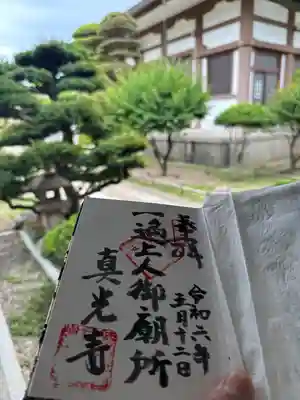 奉拝
令和六年
五月十二日
一遍上人御廟所
真光寺